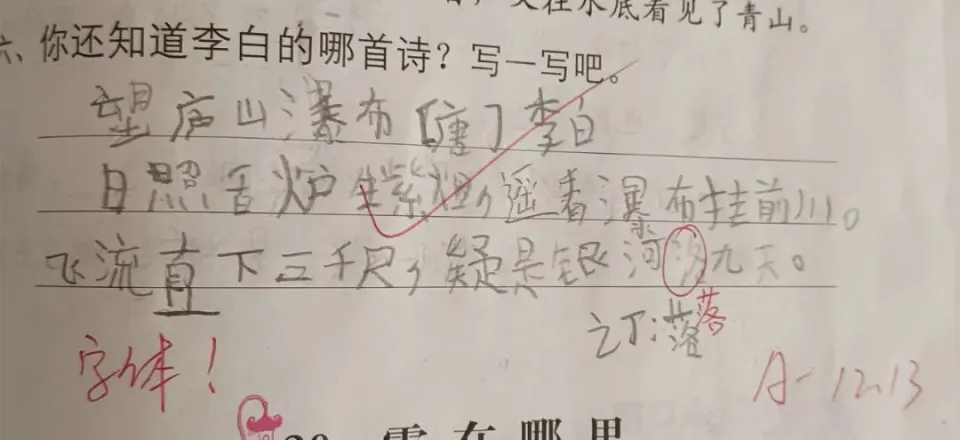 天往水底看见了青山。
六、你还知道李白的哪首诗？写一写吧。
望庐山瀑布[唐]李白
日照舌炉生紫烟，遥看瀑布挂前川。
飞流直下三千尺，疑是银河九天。
订：落落
字体！
A- 12.13
20 雪在哪里